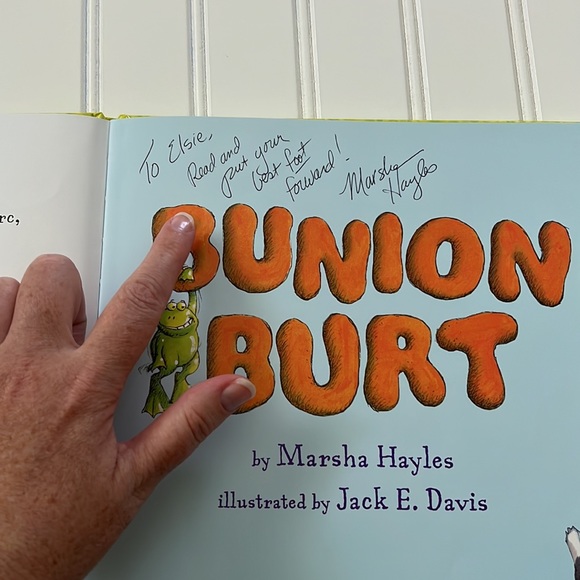 rc,
To Elsie,
Read and
put your
best foot
forward!
Marsha
Hayles
BUNION
BURT
by Marsha Hayles
illustrated by Jack E. Davis